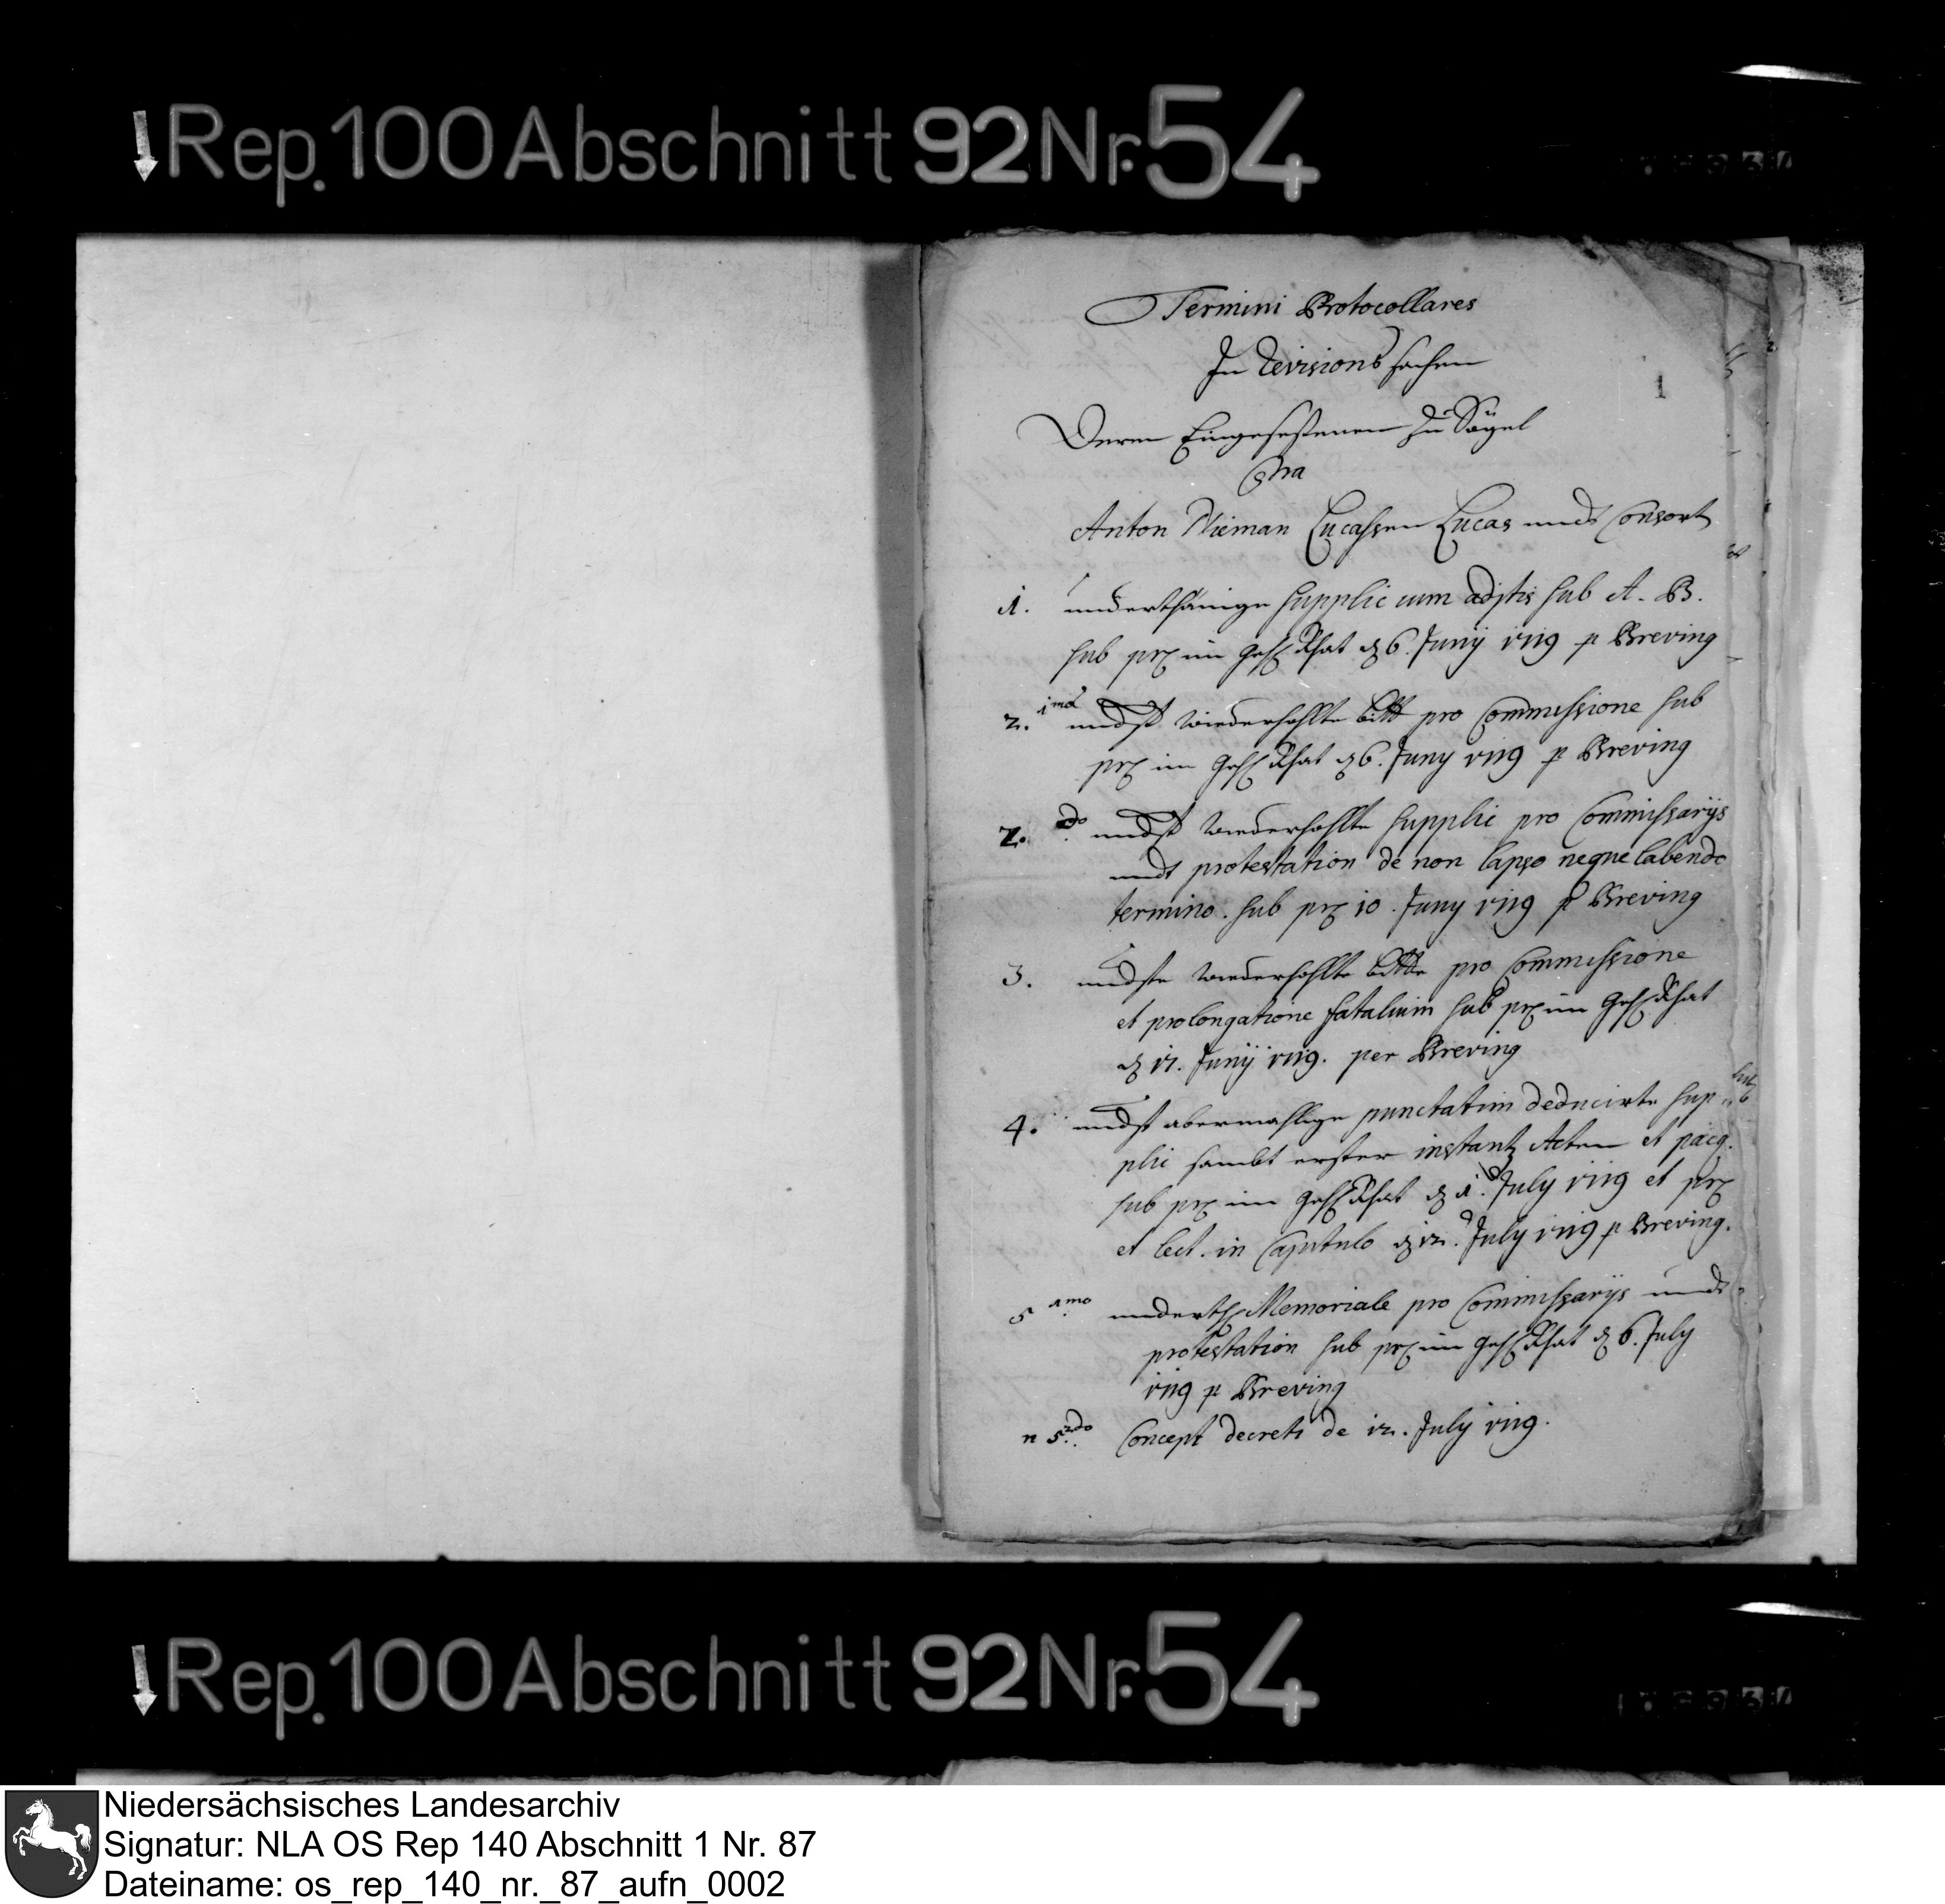 Rep. 100 Abschnitt 92 Nr. 54
Termini Protocollares
In Revisions sachen
1
Deren Eingesessenen zu Sögel
Ctra
Anton Nieman Lucassen Lucas undt Consort
1. underthänige supplic cum adjtis sub A. B.
sub prs im geh Rhat d 6. Junij 1719 p Breving
2. 1md undst wiederhohlte bitt pro Commissione sub
prs im geh Rhat d 6. Juny 1719 p Breving
2. do undst wiederhohlte supplic pro Commissarijs
undt protestation de non lapso neque labendo
termino. sub prs 10. Juny 1719 p Breving
3. undste wiederhohlte bitte pro Commissione
et prolongatione fatalium sub prs im geh Rhat
d 17. Junij 1719. per Breving
4. undst abermahlige punctatim deducirte sup
plic sambt erster instantz Acten et
sub prs im geh Rhat d 1. July 1719 et prs
et lect. in Capitulo d 12. July 1719 p Breving.
5 1mo underth Memoriale pro Commissarijs undt
protestation sub prs im geh Rhat d 6. July
1719 p Breving
n 5 2do Concept decreti de 12. July 1719.
Rep. 100 Abschnitt 92 Nr. 54
Niedersächsisches Landesarchiv
Signatur: NLA OS Rep 140 Abschnitt 1 Nr. 87
Dateiname: os_rep_140_nr._87_aufn_0002